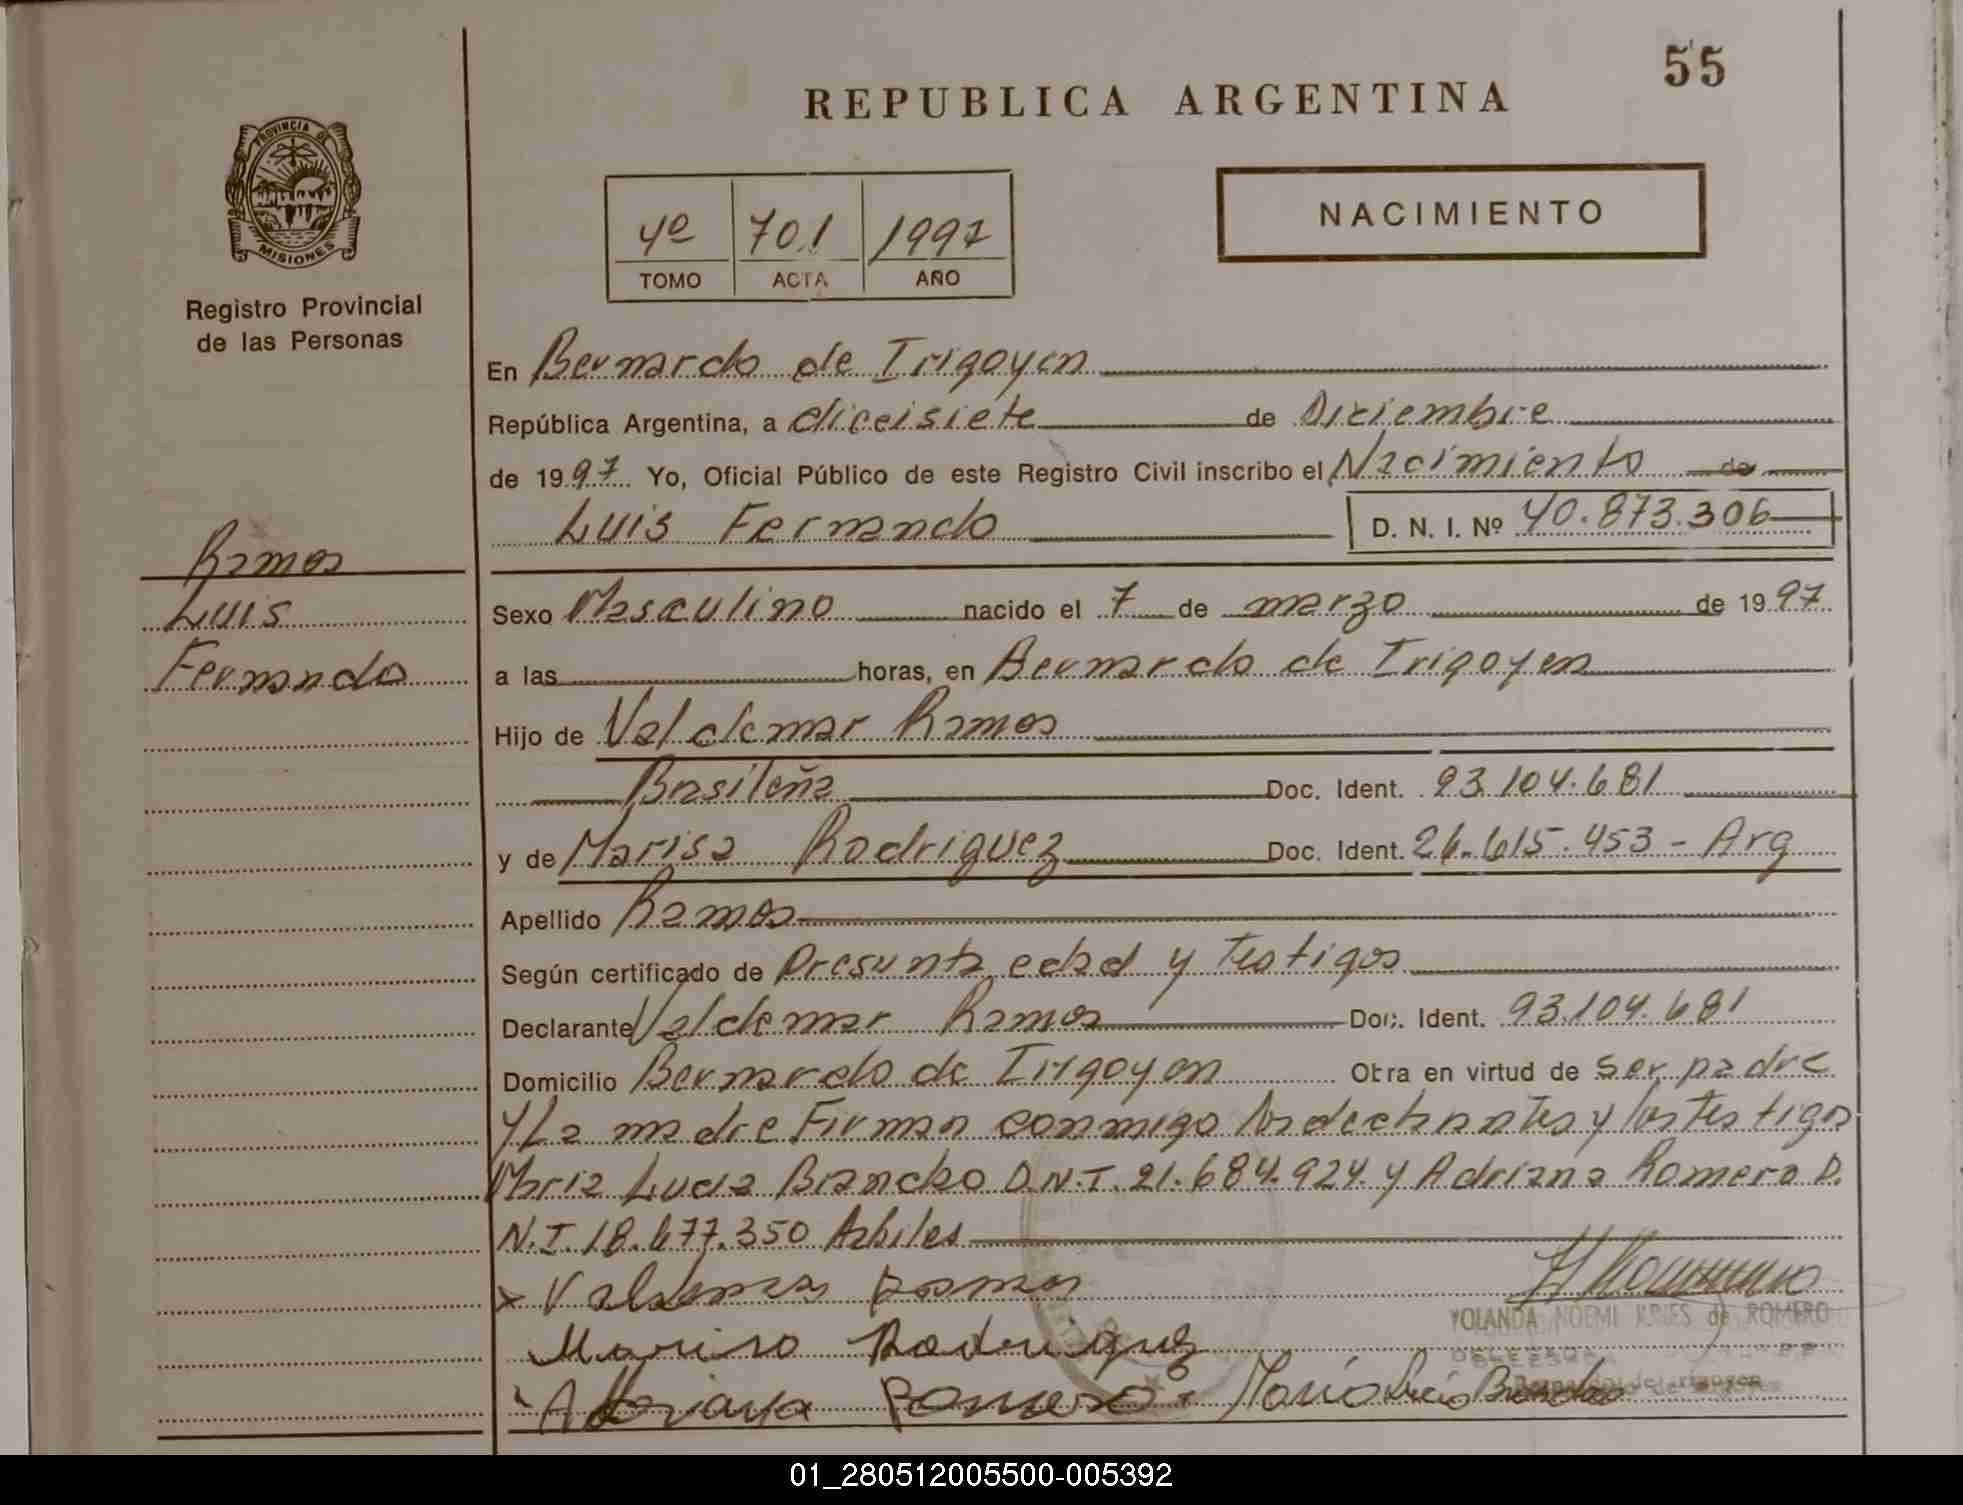 55
REPUBLICA ARGENTINA
PROVINCIA DE
MISIONES
Registro Provincial
de las Personas
4º 701 1997
TOMO ACTA AÑO
NACIMIENTO
En Bernardo de Irigoyen
República Argentina, a dieeisiete de Diciembre
de 1997 Yo, Oficial Público de este Registro Civil inscribo el Nacimiento de
Luis Fernando D. N. I. Nº 40.873.306
Ramos
Luis
Fernando
Sexo Masculino nacido el 7 de marzo de 1997
a las horas, en Bernardo de Irigoyen
Hijo de Valdemar Ramos
Brasileña Doc. Ident. 93.104.681
y de Marisa Rodriguez Doc. Ident. 26.615.453 - Arg
Apellido Ramos
Según certificado de Presunta edad y Testigos
Declarante Valdemar Ramos Doc. Ident. 93.104.681
Domicilio Bernardo de Irigoyen Obra en virtud de ser padre
y La madre Firman conmigo los y los Testigos
Maria Lucia Brandao D.N.I. 21.684.924 y Adriana Romero D.
N.I. 18.677.350 Habiles
x Valdemar Ramos
Marisa Rodriguez
Adriana Romero Maria Lucia Brandao
YOLANDA NOEMI de ROMERO
01_280512005500-005392